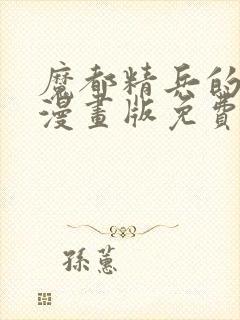 魔都精兵的
漫畫版免費
孫蕙